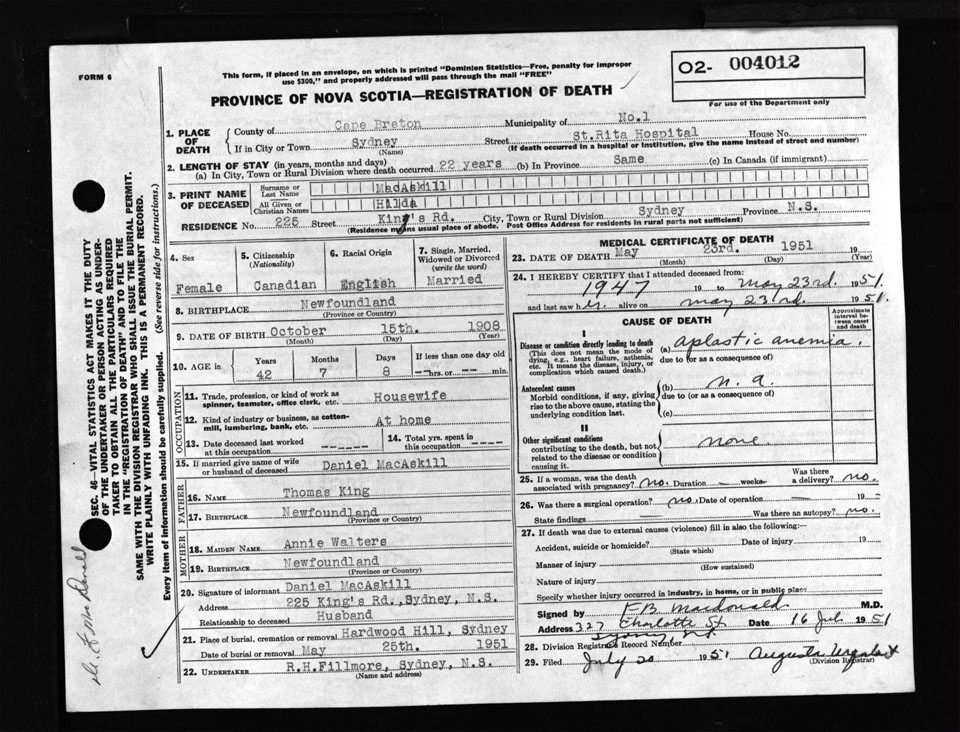 FORM 6
This form, if placed in an envelope, on which is printed "Dominion Statistics—Free, penalty for improper
use $300," and properly addressed will pass through the mail "FREE"
O2- 004012
For use of the Department only
PROVINCE OF NOVA SCOTIA—REGISTRATION OF DEATH
1. PLACE OF DEATH
County of Cape Breton Municipality of No.1
If in City or Town Sydney Street St.Rita Hospital House No.
(Name) (If death occurred in a hospital or institution, give the name instead of street and number)
2. LENGTH OF STAY (in years, months and days)
(a) In City, Town or Rural Division where death occurred 22 years (b) In Province Same (c) In Canada (if immigrant)
3. PRINT NAME OF DECEASED
Surname or Last Name MacAskill
All Given or Christian Names Hilda
RESIDENCE No. 225 Street King's Rd. City, Town or Rural Division Sydney Province N.S.
(Residence means usual place of abode. Post Office Address for residents in rural parts not sufficient)
4. Sex
Female
5. Citizenship
(Nationality)
Canadian
6. Racial Origin
English
7. Single, Married,
Widowed or Divorced
(write the word)
Married
8. BIRTHPLACE Newfoundland
(Province or Country)
9. DATE OF BIRTH October 15th. 1908
(Month) (Day) (Year)
10. AGE in
Years Months Days If less than one day old
42 7 8 hrs. or min.
OCCUPATION
11. Trade, profession, or kind of work as
spinner, teamster, office clerk, etc. Housewife
12. Kind of industry or business, as cotton-
mill, lumbering, bank, etc. At home
13. Date deceased last worked
at this occupation
14. Total yrs. spent in
this occupation
15. If married give name of wife
or husband of deceased Daniel MacAskill
FATHER
16. NAME Thomas King
17. BIRTHPLACE Newfoundland
(Province or Country)
MOTHER
18. MAIDEN NAME Annie Walters
19. BIRTHPLACE Newfoundland
(Province or Country)
20. Signature of informant Daniel MacAskill
Address 225 King's Rd., Sydney, N.S.
Relationship to deceased Husband
21. Place of burial, cremation or removal Hardwood Hill, Sydney
Date of burial or removal May 25th. 1951
22. UNDERTAKER R.H.Fillmore, Sydney, N.S.
(Name and address)
MEDICAL CERTIFICATE OF DEATH
23. DATE OF DEATH May 23rd. 1951 19
(Month) (Day) (Year)
24. I HEREBY CERTIFY that I attended deceased from
1947 19 to May 23rd. 1951
and last saw her alive on May 23rd. 1951.
CAUSE OF DEATH
Approximate
interval be-
tween onset
and death
I
Disease or condition directly leading to death
(This does not mean the mode of
dying, e.g., heart failure, asthenia,
etc. It means the disease, injury, or
complication which caused death.)
(a) Aplastic anemia.
due to (or as a consequence of)
Antecedent causes
Morbid conditions, if any, giving
rise to the above cause, stating the
underlying condition last.
(b) n. a.
due to (or as a consequence of)
(c)
II
Other significant conditions
contributing to the death, but not
related to the disease or condition
causing it.
none
25. If a woman, was the death
associated with pregnancy? no. Duration — weeks. Was there
a delivery? no.
26. Was there a surgical operation? no. Date of operation — 19
State findings — Was there an autopsy? no.
27. If death was due to external causes (violence) fill in also the following:—
Accident, suicide or homicide? Date of injury 19
(State which)
Manner of injury
(How sustained)
Nature of injury
Specify whether injury occurred in industry, in home, or in public place
Signed by F.B. Macdonald M.D.
Address 327 Charlotte St Date 16 Jul 1951
Sydney N.S.
28. Division Registrar's Record Number
29. Filed July 20 1951 Augusta
(Division Registrar)
SEC. 46—VITAL STATISTICS ACT MAKES IT THE DUTY
OF THE UNDERTAKER OR PERSON ACTING AS UNDER-
TAKER TO OBTAIN ALL THE PARTICULARS REQUIRED
IN THE "REGISTRATION OF DEATH" AND TO FILE THE
SAME WITH THE DIVISION REGISTRAR WHO SHALL ISSUE THE BURIAL PERMIT.
WRITE PLAINLY WITH UNFADING INK. THIS IS A PERMANENT RECORD.
Every item of information should be carefully supplied. (See reverse side for instructions.)